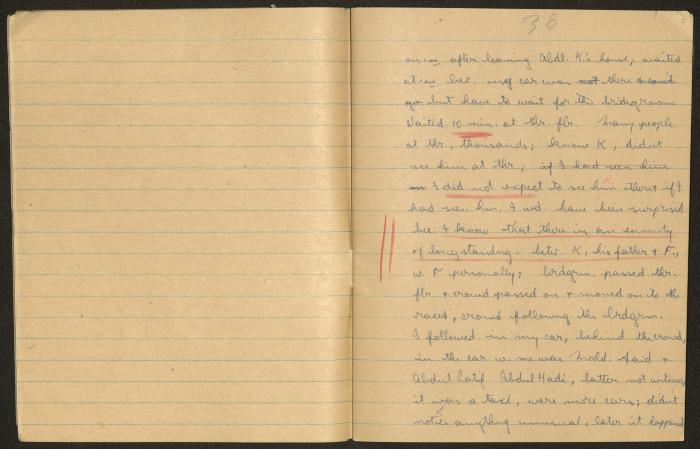 38
on, after leaving Abdl. K's house, waited
at bec. my car was not there & can't
go but have to wait for the bridegroom
Waited 10 min. at thr. flr. Many people
at thr, thousands; know K, didn't
see him at thr; if I had seen him
I did not expect to see him there if I
had seen him. I wd. have been surprised
bec. I know that there is an enmity
of longstandng. betw. K, his father & F.,
w. F personally; brdgrm. passed thr.
flr. & crowd passed on & moved on to the
races, crowd following the brdgrm.
I followed in my car, behind the crowd,
in the car w. me was Mohd. Said &
Abdul Latif Abdul Hadi, latter not witness,
it was a taxi, were more cars; didn't
notice anythng unusual, later it happend